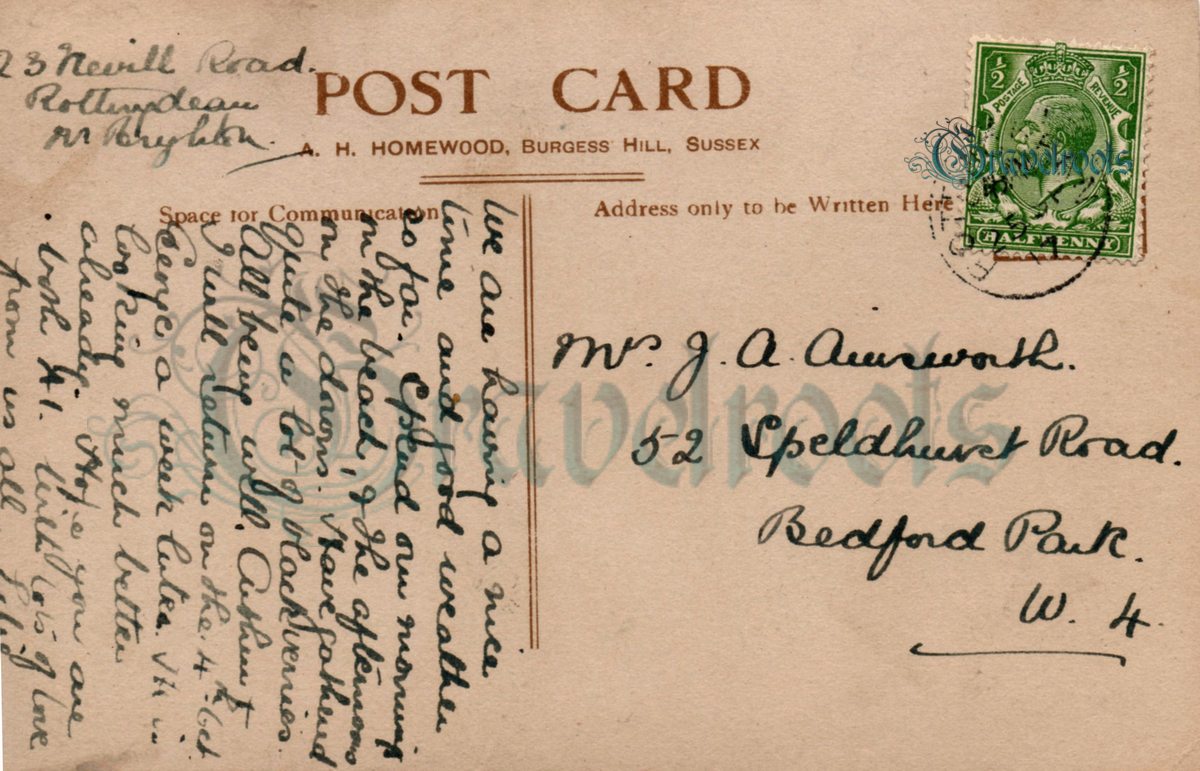 23 Nevill Road.
Rottingdean
nr Brighton.
POST CARD
A. H. HOMEWOOD, BURGESS HILL, SUSSEX
Space for Communication
Address only to be Written Here
½ ½
POSTAGE REVENUE
HALFPENNY
Gravelroots
We are having a nice
time and good weather
so far. Spend our mornings
on the beach, & the afternoons
on the downs. Have gathered
quite a lot of blackberries.
All being well, Arthur &
I will return on the 4th Oct
George a week later.
looking much better
already. Hope you are
both A1. With lots of love
from us all.
Mrs J. A. Ainsworth.
52 Speldhurst Road.
Bedford Park.
W. 4.